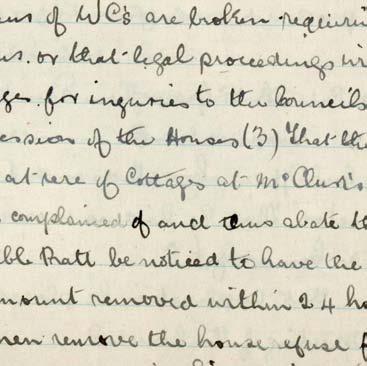 of WCs are broken requiri
us. or that legal proceedings
ges for injuries to the Councils
ession of the Houses (3) That the
at rere of Cottages at McClure's
complained of and thus abate
ble Pratt be noticed to have the
mount removed within 24 ho
remove the house refuse f